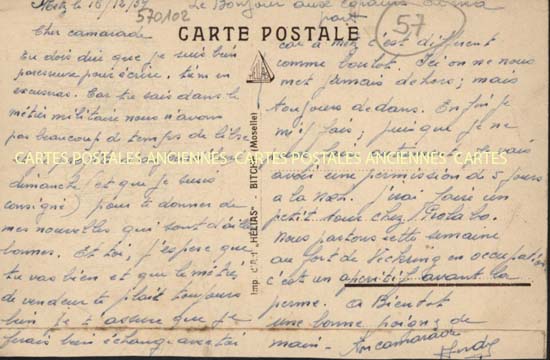 Metz le 16/12/57
Le Bonjour aux copains
part
570102
57
CARTE POSTALE
Cher camarade
Tu dois dire que je suis bien
paresseux pour écrire, tu m'en
excuseras. Car tu sais dans le
métier militaire nous n'avons
pas beaucoup de temps de libre
dimanche (et que je suis
consigné) pour te donner de
mes nouvelles qui sont
bonnes. Et toi, j'espère que
tu vas bien et que le métier
de vendeur te plait toujours
bien je t'assure que je
ferais bien échange avec toi
Imp. d'Art "HELIAS" - BITCHE (Moselle)
car à Metz c'est différent
comme boulot. Ici on ne nous
met jamais dehors; mais
toujours dedans. Enfin je
m'y fais, puisque je ne
avoir une permission de 5 jours
a la Noël. J'irai faire un
petit tour chez
Nous partons cette semaine
au fort de en occupation
c'est un aperitif avant la
perme. a Bientot
une bonne poignée de
main - Ton camarade
CARTES POSTALES ANCIENNES CARTES POSTALES ANCIENNES CARTES